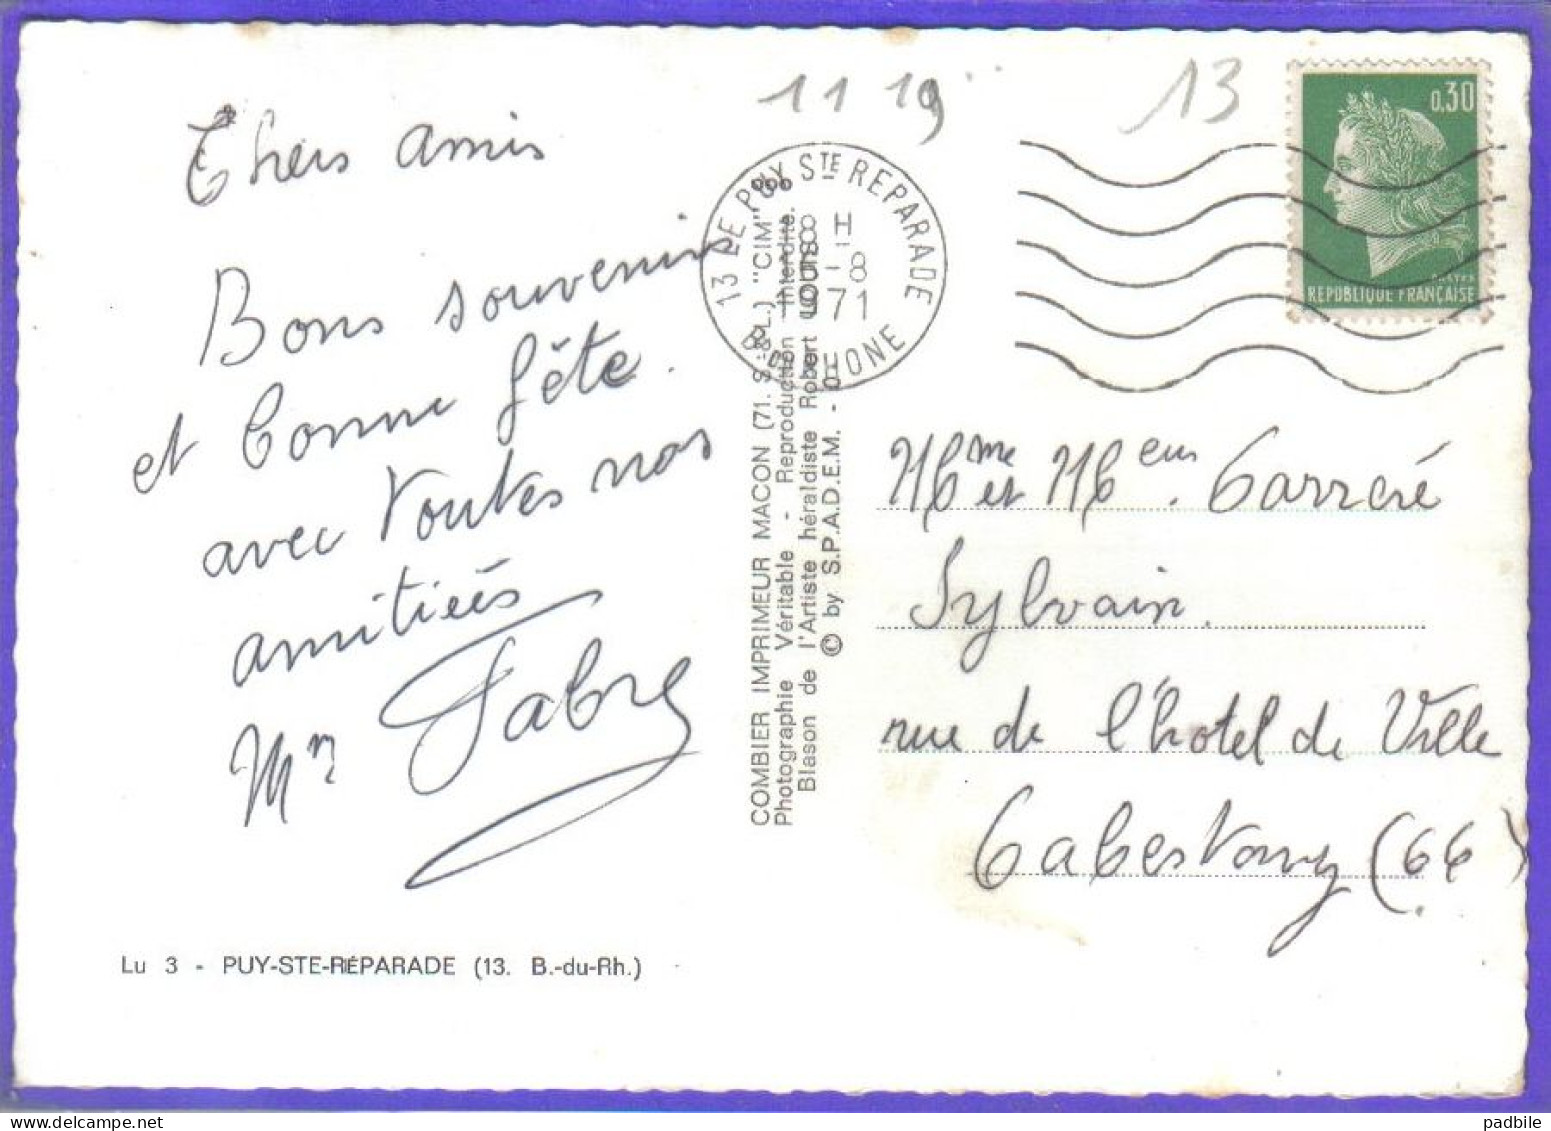 Chers amis
Bons souvenirs
et bonne fête.
avec toutes nos
amitiés
Mr Fabre
Lu 3 - PUY-STE-RÉPARADE (13. B.-du-Rh.)
COMBIER IMPRIMEUR MACON (71. S.-&-L.) "CIM"
Photographie Véritable - Reproduction Interdite.
Blason de l'Artiste héraldiste Robert
© by S.P.A.D.E.M. -
11 19
13
13 LE PUY STE REPARADE
8 H
5-8
1971
BDU RHONE
0,30
REPUBLIQUE FRANÇAISE
Mme et Mr. Carreré
Sylvain.
rue de l'hotel de Ville
Cabestany (66)
padbile